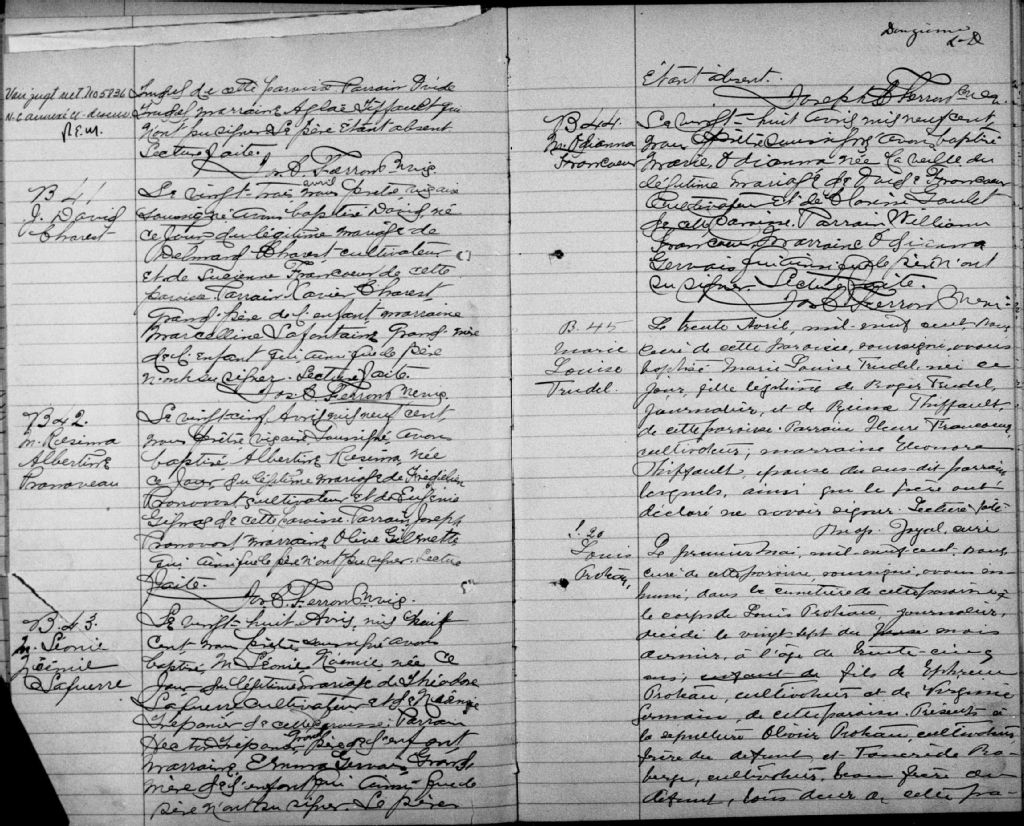 Voir jugt net No 5836
N.C. annexé ci-dessus
P.E.M.
Trudel de cette paroisse Parrain Ovide
Trudel marraine Aglaé Tiffault qui
n'ont pu signer Le père étant absent
Lecture faite.
Jos D. Ferron Ptre vic.
B 41
J. David
Charest
Le vingt-trois avril nous prêtre vicaire
soussigné avons baptisé David né
ce jour du légitime mariage de
Delmard Charest cultivateur
et de Lucienne Francoeur de cette
paroisse. Parrain Xavier Charest
Grand-père de l'enfant marraine
Marcelline Lafontaine Grand-mère
de l'enfant qui ainsi que le père
n'ont su signer. Lecture faite
Jos D. Ferron Ptre vic.
B 42.
M. Rosima
Albertine
Pronoveau
Le vingt-cinq Avril mil neuf cent
nous Prêtre vicaire soussigné avons
baptisé Albertine Rosima née
ce jour du légitime mariage de
Pronovost cultivateur et de Eugénie
Gignac de cette paroisse. Parrain Joseph
Pronovost marraine Olive
qui ainsi que le père n'ont pu signer. Lecture
faite.
Jos D. Ferron Ptre vic.
B 43.
M. Léonie
Noémie
Lafierre
Le vingt-huit Avril mil neuf
cent nous Prêtre soussigné avons
baptisé M Léonie Noémie née ce
jour du légitime mariage de Théodore
Lafierre cultivateur et de
Trépanier de cette paroisse. Parrain
Hector Trépanier Grand père de l'enfant
marraine Emma Gervais Grand-
mère de l'enfant qui ainsi que le
père n'ont su signer. Le père
étant absent.
Joseph D Ferron Ptre vic.
B 44.
M. Odianna
Francoeur
Le vingt-huit avril mil neuf cent
nous Prêtre soussigné avons baptisé
Marie Odianna née la veille du
légitime mariage de Francoeur
Cultivateur et de Goulet
de cette paroisse. Parrain William
Francoeur marraine
Gervais qui ainsi que le père n'ont
su signer. Lecture faite.
Jos D. Ferron Ptre vic.
B. 45
Marie
Louise
Trudel.
Le trente Avril, mil-neuf cent nous
curé de cette paroisse, soussigné, avons
baptisé Marie Louise Trudel, née ce
jour, fille légitime de Roger Trudel,
journalier, et de Reina Thiffault,
de cette paroisse. Parrain Henri Francoeur,
cultivateur, marraine Eleonora
Thiffault, épouse du sus-dit parrain
lesquels, ainsi que le père ont
déclaré ne savoir signer. Lecture faite.
Joyal, curé
S. 20
Louis
Proteau,
Le premier Mai, mil-neuf cent, nous
curé de cette paroisse, soussigné, avons in-
humé, dans le cimetière de cette paroisse
le corps de Louis Proteau journalier,
décédé le vingt sept du mois
dernier, à l'âge de trente-cinq
ans, fils de Ephrem
Proteau, cultivateur et de Virginie
Germain, de cette paroisse. Présents à
la sépulture Olivier Proteau, cultivateur,
frère du défunt et Tancrède Ro-
berge, cultivateur, beau frère du
défunt, tous deux de cette pa-